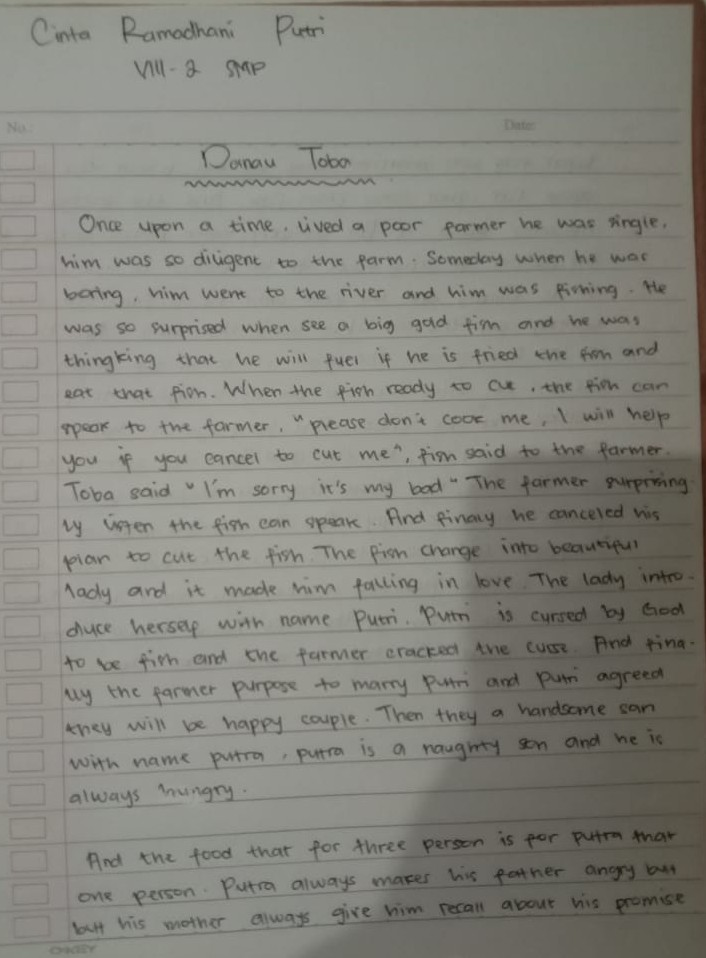 Cinta Ramadhani Putri
VIII - 2 SMP
No.:
Date:
Danau Toba
Once upon a time, lived a poor farmer he was single,
him was so diligent to the farm. Someday when he was
boring, him went to the river and him was fishing. He
was so surprised when see a big gold fish and he was
thingking that he will fuel if he is fried the fish and
eat that fish. When the fish ready to cut, the fish can
speak to the farmer, "please don't cook me, I will help
you if you cancel to cut me", fish said to the farmer.
Toba said "I'm sorry it's my bad" The farmer surprising-
ly listen the fish can speak. And finaly he canceled his
plan to cut the fish The fish change into beautiful
lady and it made him falling in love. The lady intro-
duce herself with name Putri. Putri is cursed by God
to be fish and the farmer cracked the curse. And fina-
lly the farmer purpose to marry Putri and Putri agreed
they will be happy couple. Then they a handsome son
with name putra, putra is a naughty son and he is
always hungry.
And the food that for three person is for putra that
one person. Putra always makes his father angry but
but his mother always give him recall about his promise